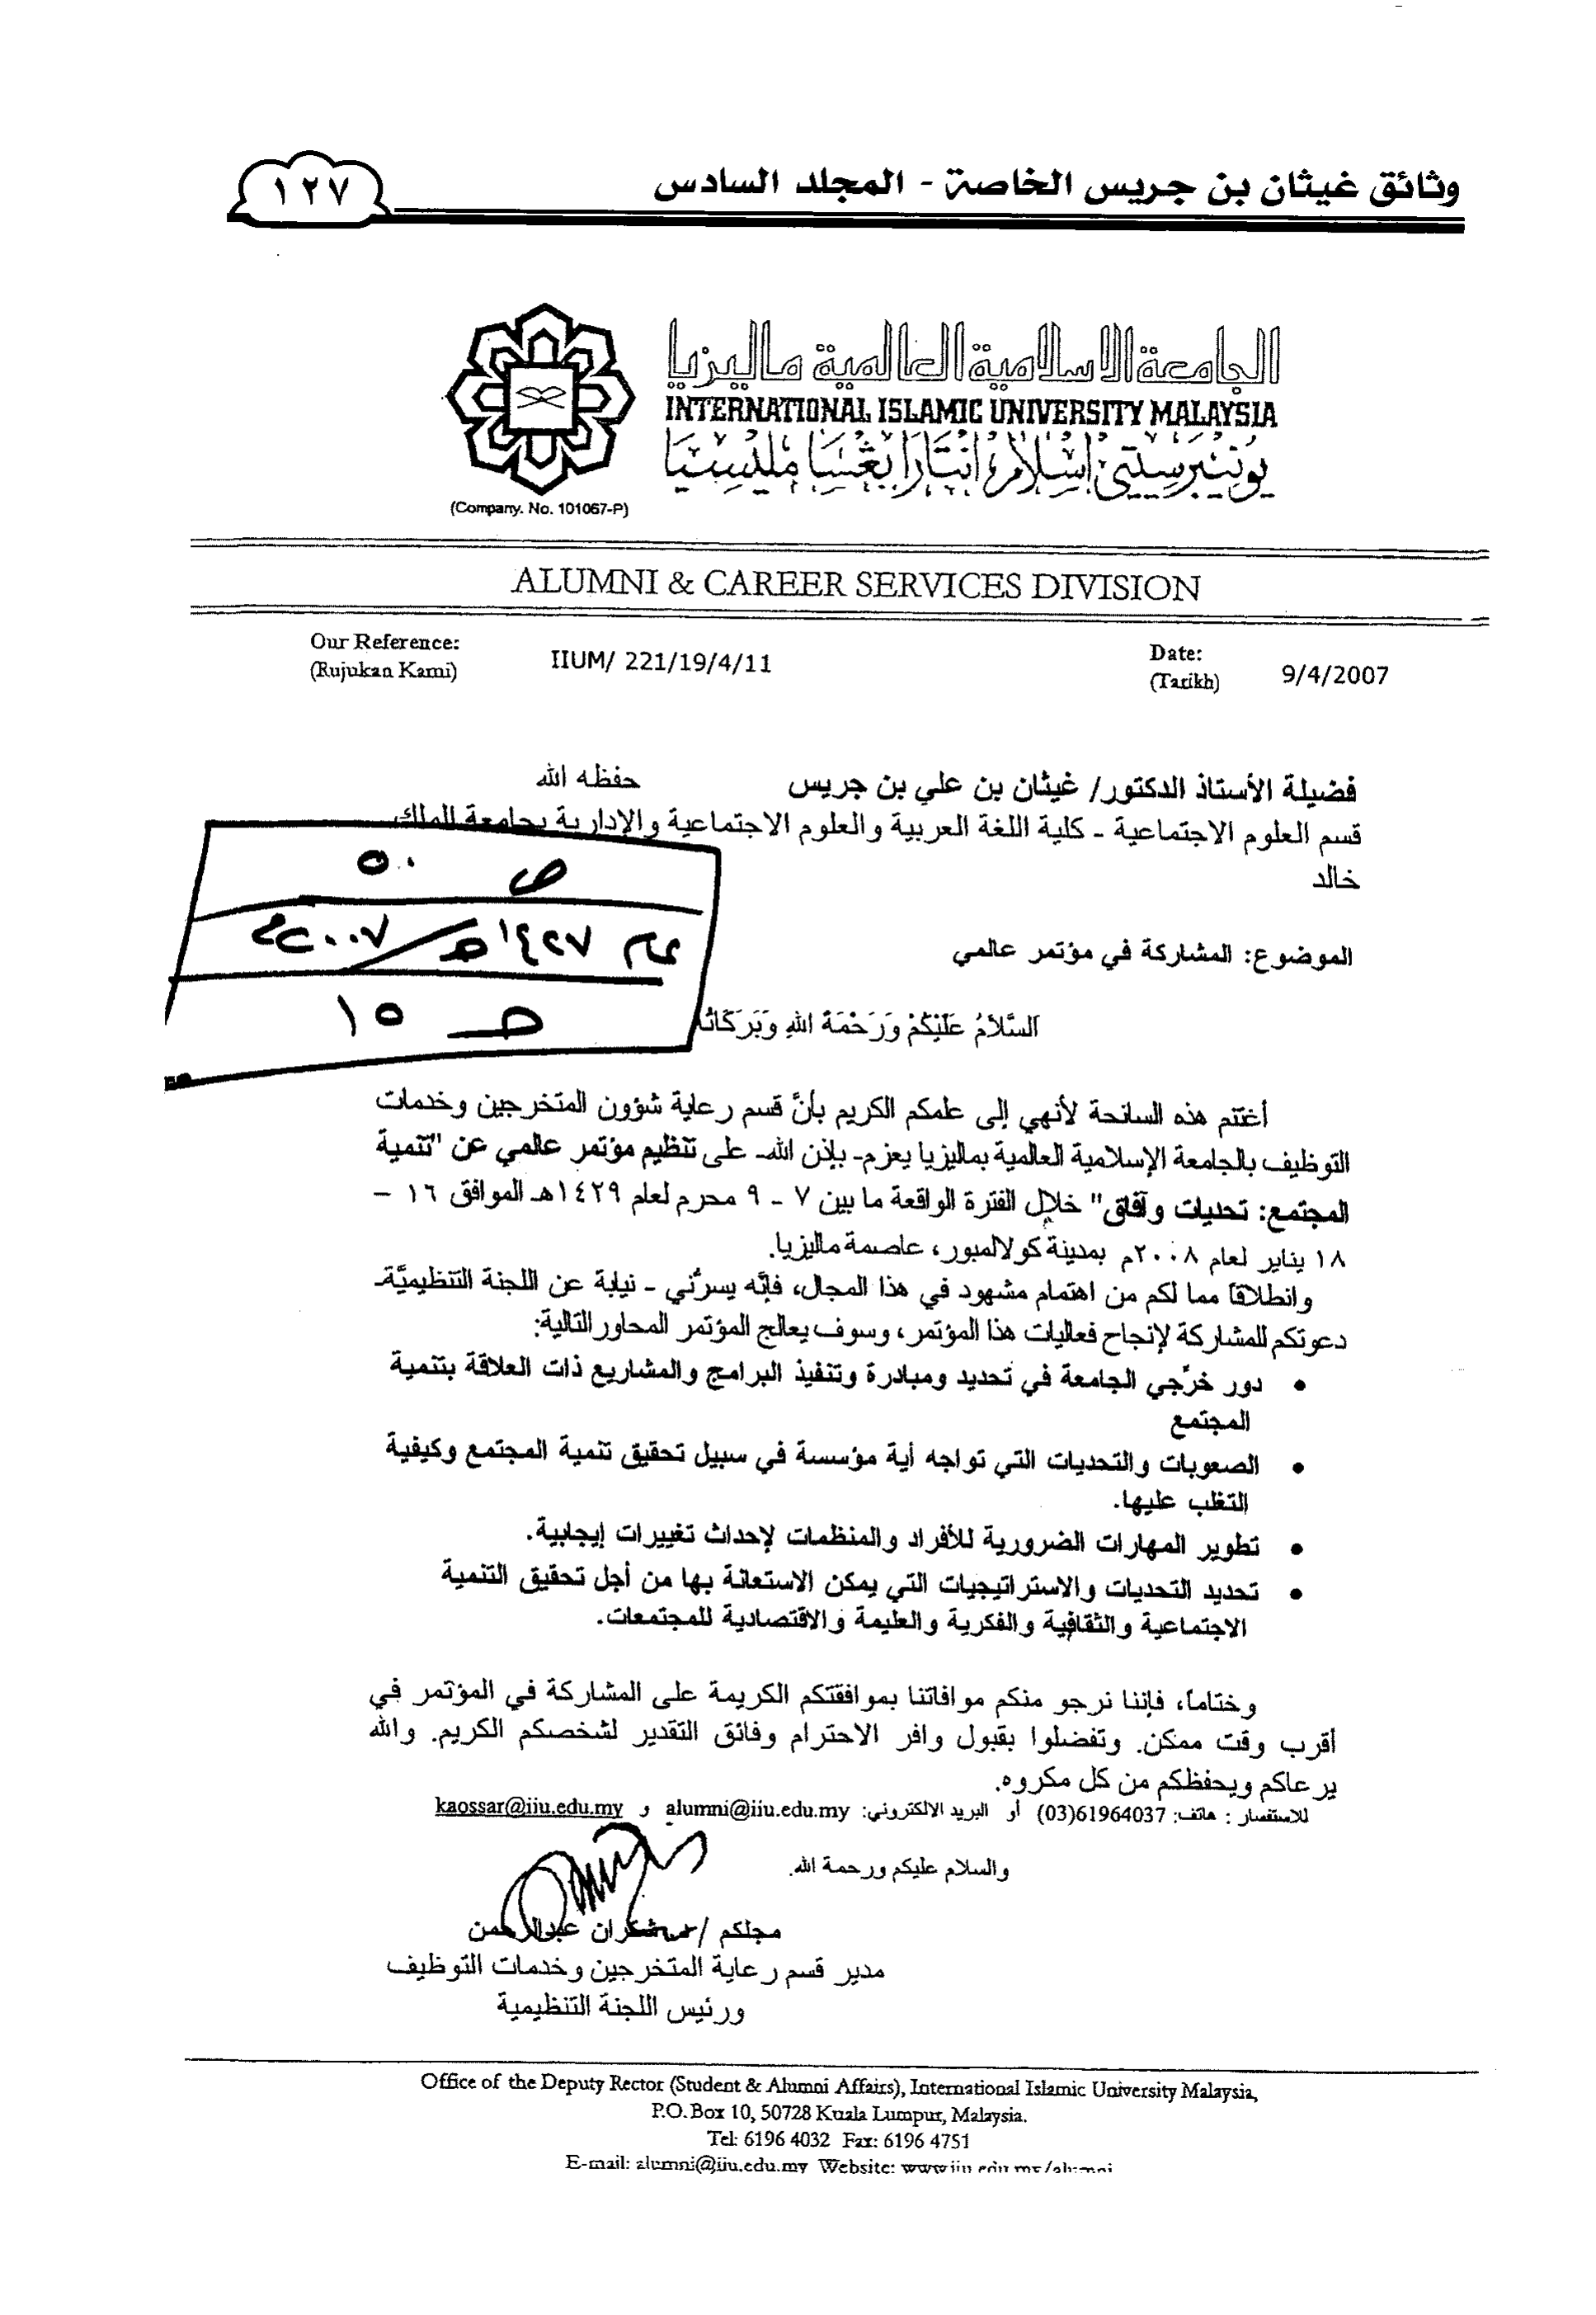 وثائق غيثان بن جريس الخاصة - المجلد السادس
١٢٧
الجامعة الاسلامية العالمية ماليزيا
INTERNATIONAL ISLAMIC UNIVERSITY MALAYSIA
يونيبرسيتي اسلام انتارابغسا مليسيا
(Company. No. 101067-P)
ALUMNI & CAREER SERVICES DIVISION
Our Reference:
(Rujukan Kami)
IIUM/ 221/19/4/11
Date:
(Tarikh)
9/4/2007
فضيلة الأستاذ الدكتور/ غيثان بن علي بن جريس حفظه الله
قسم العلوم الاجتماعية - كلية اللغة العربية والعلوم الاجتماعية والإدارية بجامعة الملك
خالد
ص ٥٠
عام ١٤٢٧هـ/٢٠٠٧م
ص ١٥
الموضوع: المشاركة في مؤتمر عالمي
السَّلاَمُ عَلَيْكُمْ وَرَحْمَةُ اللهِ وَبَرَكَاتُهُ
أغتنم هذه السانحة لأنهي إلى علمكم الكريم بأنَّ قسم رعاية شؤون المتخرجين وخدمات
التوظيف بالجامعة الإسلامية العالمية بماليزيا يعزم- بإذن الله- على تنظيم مؤتمر عالمي عن "تنمية
المجتمع: تحديات وآفاق" خلال الفترة الواقعة ما بين ٧ - ٩ محرم لعام ١٤٢٩هـ الموافق ١٦ -
١٨ يناير لعام ٢٠٠٨م بمدينة كولالمبور، عاصمة ماليزيا.
وانطلاقاً مما لكم من اهتمام مشهود في هذا المجال، فإنَّه يسرُّني - نيابة عن اللجنة التنظيميَّة-
دعوتكم للمشاركة لإنجاح فعاليات هذا المؤتمر، وسوف يعالج المؤتمر المحاور التالية:
• دور خرَّجي الجامعة في تحديد ومبادرة وتنفيذ البرامج والمشاريع ذات العلاقة بتنمية
المجتمع
• الصعوبات والتحديات التي تواجه أية مؤسسة في سبيل تحقيق تنمية المجتمع وكيفية
التغلب عليها.
• تطوير المهارات الضرورية للأفراد والمنظمات لإحداث تغييرات إيجابية.
• تحديد التحديات والاستراتيجيات التي يمكن الاستعانة بها من أجل تحقيق التنمية
الاجتماعية والثقافية والفكرية والعليمة والاقتصادية للمجتمعات.
وختاماً، فإننا نرجو منكم موافاتنا بموافقتكم الكريمة على المشاركة في المؤتمر في
أقرب وقت ممكن. وتفضلوا بقبول وافر الاحترام وفائق التقدير لشخصكم الكريم. والله
يرعاكم ويحفظكم من كل مكروه.
للاستفسار : هاتف: 61964037(03) أو البريد الالكتروني: alumni@iiu.edu.my و kaossar@iiu.edu.my
والسلام عليكم ورحمة الله.
مجلكم / عبدالرحمن
مدير قسم رعاية المتخرجين وخدمات التوظيف
ورئيس اللجنة التنظيمية
Office of the Deputy Rector (Student & Alumni Affairs), International Islamic University Malaysia,
P.O. Box 10, 50728 Kuala Lumpur, Malaysia.
Tel: 6196 4032 Fax: 6196 4751
E-mail: alumni@iiu.edu.my Website: www.iiu.edu.my/alumni